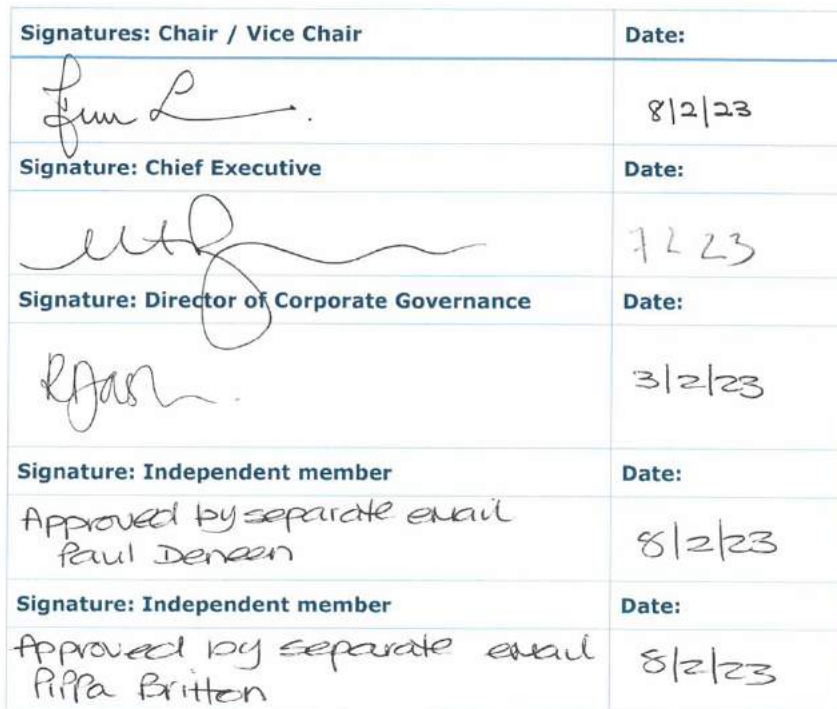 Signatures: Chair / Vice Chair Date:
8/2/23
Signature: Chief Executive Date:
7 2 23
Signature: Director of Corporate Governance Date:
3/2/23
Signature: Independent member Date:
Approved by separate email
Paul Deneen 8/2/23
Signature: Independent member Date:
Approved by separate email
Pippa Britton 8/2/23